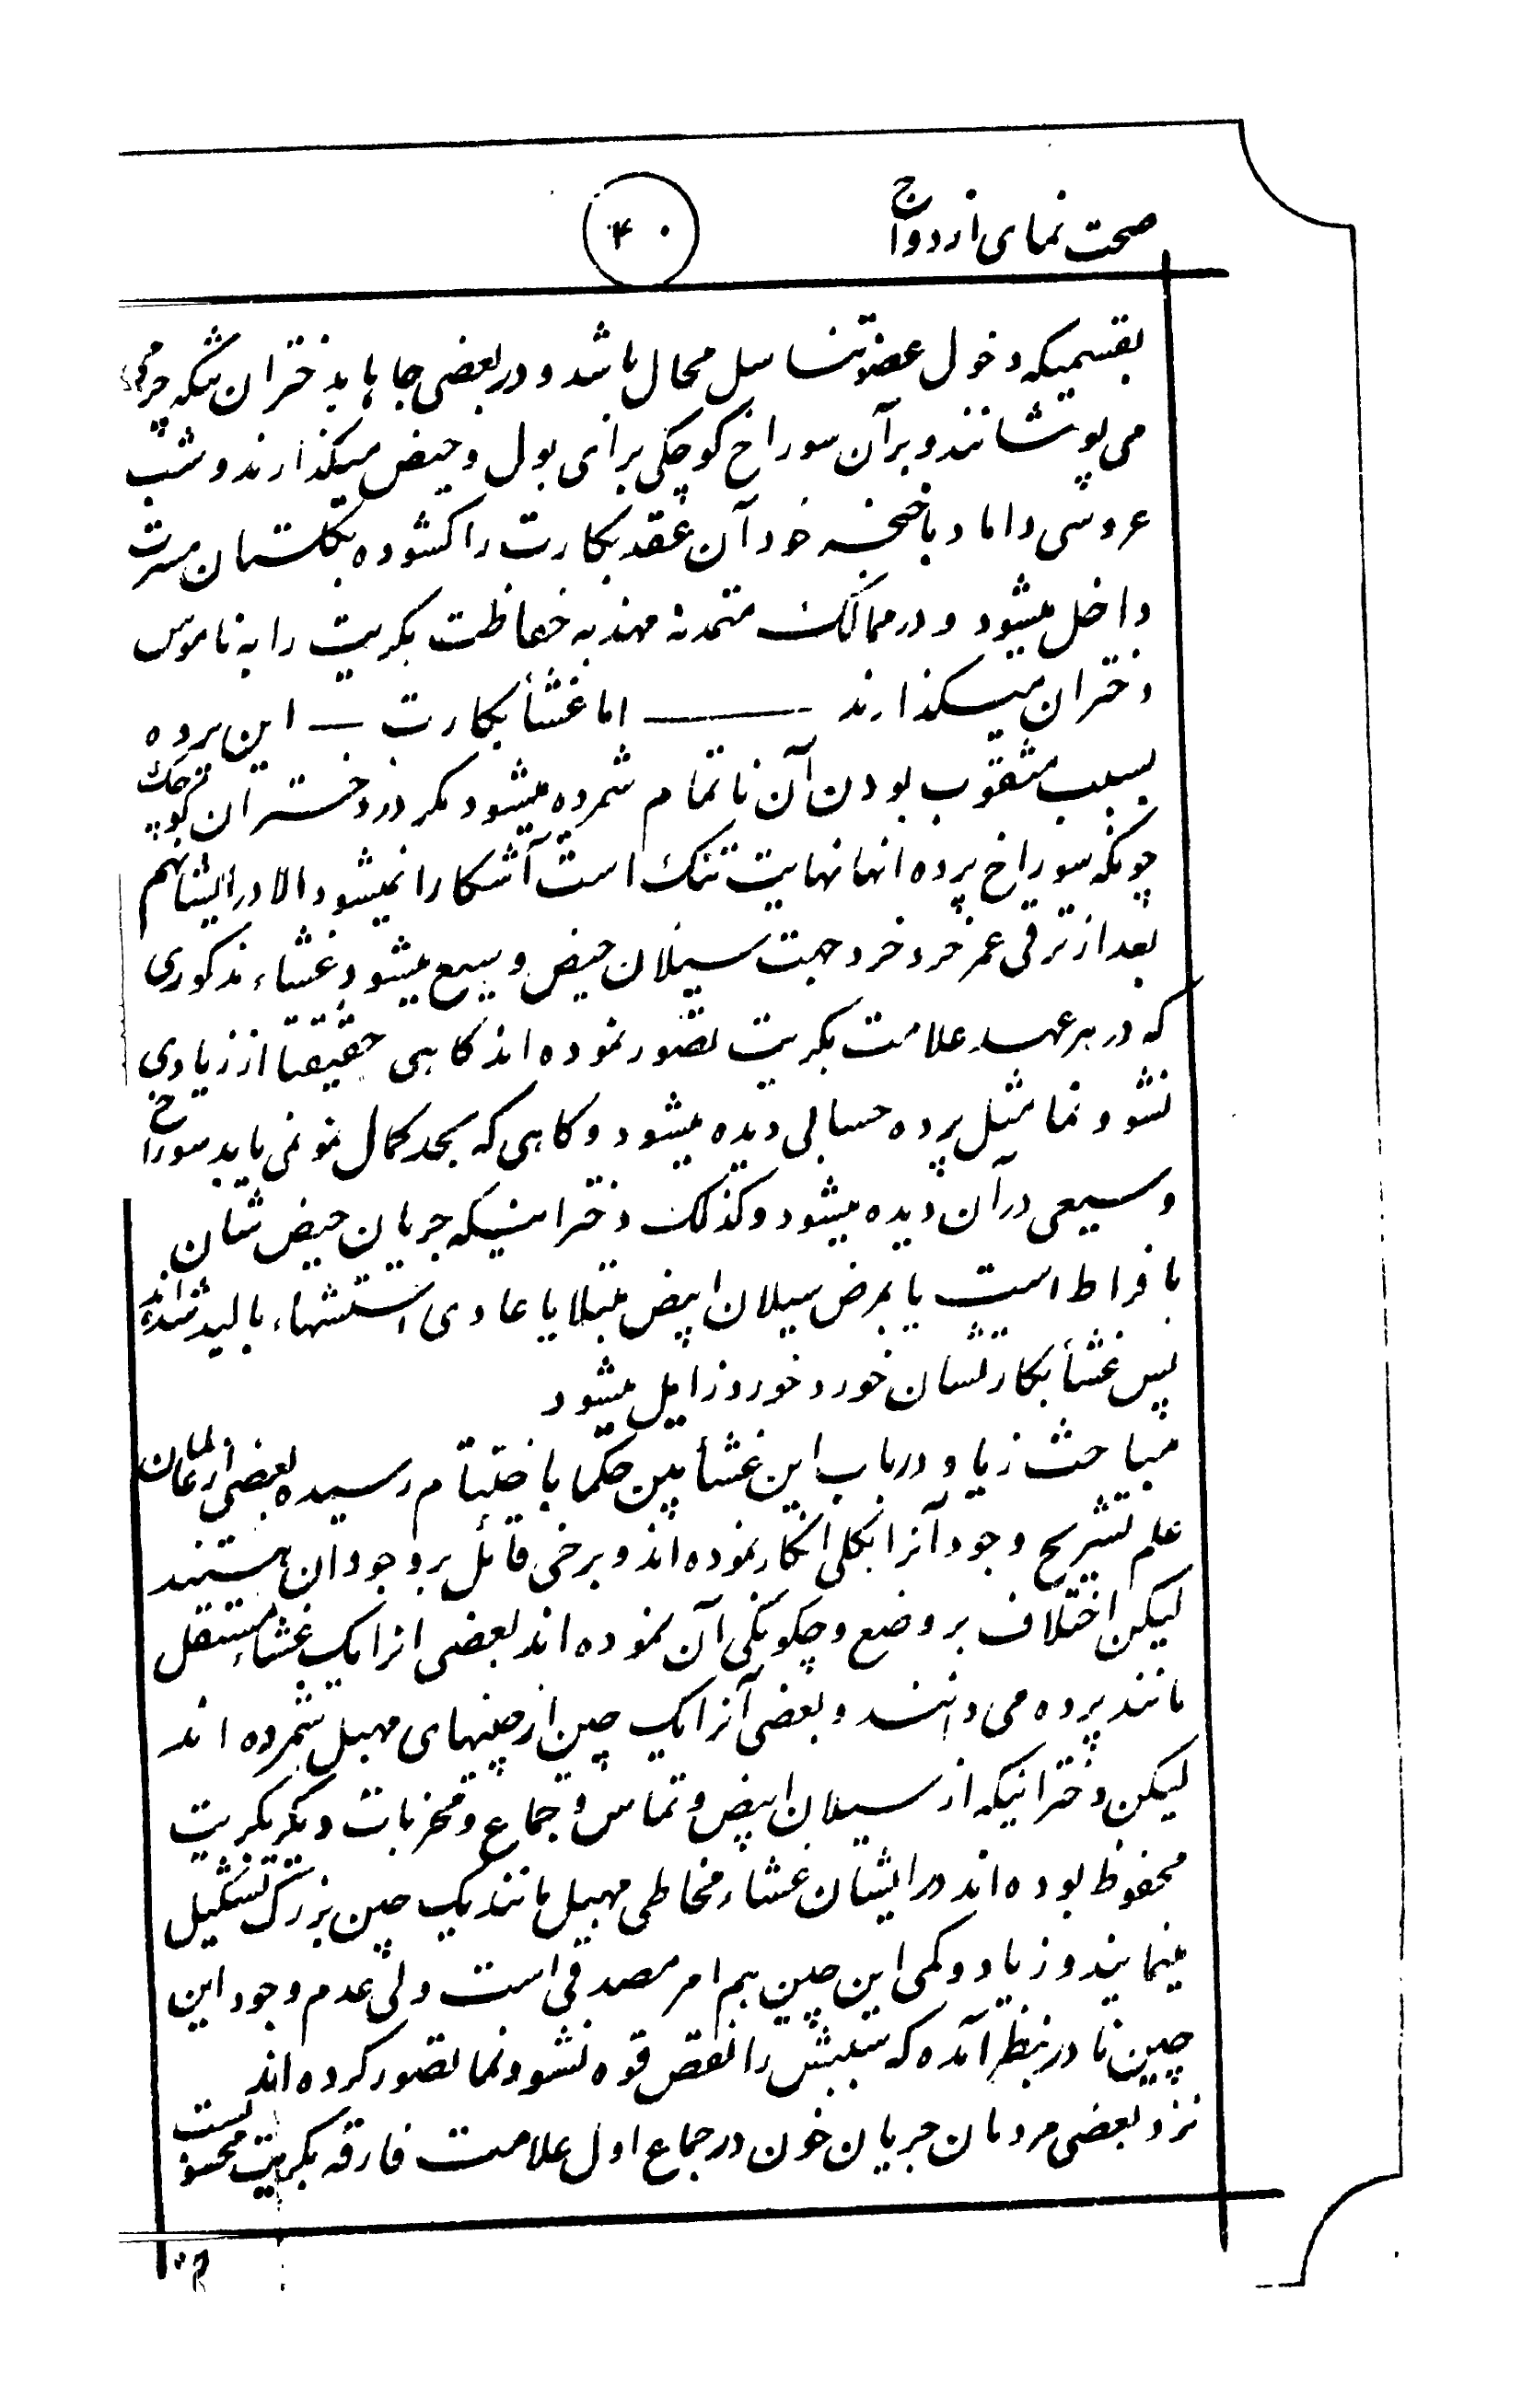 صحت نمای ازدواج
۴۰
بقسمیکه دخول عضو تناسل محال باشد و در بعضی جاها بدختران تنکه چرمی
می پوشانند و بر آن سوراخ کوچکی برای بول و حیض میکذارند و شب
عروسی داماد با خنجر خود آن عقد بکارت را کشوده بکلستان مسرت
داخل میشود و در ممالک متمدنه مهذبه حفاظت بکریت را به ناموس
دختران میکذارند ــــــ اما غشأ بکارت ــ این پرده
بسبب مثقوب بودن آن ناتمام شمرده میشود مکر در دختران کوچک
چونکه سوراخ پرده انها نهایت تنک است آشکارا نمیشود الا در ایشانهم
بعد از ترقی عمر خرد خرد جهت سیلان حیض وسیع میشود غشاء مذکوری
که در هر عهد علامت بکریت تصور نموده اند کاهی حقیقتا از زیادی
نشو و نما مثل پرده حسابی دیده میشود و کاهی که بحد کمال نمو نمی یابد سوراخ
وسیعی در آن دیده میشود و کذلک دخترانیکه جریان حیض شان
بافراط است یا بمرض سیلان ابیض مبتلا یا عادی استشهاء بالید شده اند
پس غشأ بکارتشان خورد خورد زایل میشود
مباحث زیاد در باب این غشأ بین حکما باختتام رسیده بعضی از عالمان
علم تشریح وجود آنرا بکلی انکار نموده اند و برخی قائل بر وجود ان هستند
لیکن اختلاف بر وضع و چکونکی آن نموده اند بعضی انرا یک غشاء مستقل
مانند پرده می دانند و بعضی آنرا یک چین از چینهای مهبل شمرده اند
لیکن دخترانیکه از سیلان ابیض و تماس و جماع و مخربات دیکر بکریت
محفوظ بوده اند در ایشان غشاء مخاطی مهبل مانند یک چین بزرک تشکیل
مینمایند و زیاد و کمی این چین هم امر مصدقی است ولی عدم وجود این
چین نادر بنظر آمده که سببش را نقص قوه نشو و نما تصور کرده اند
نزد بعضی مردمان جریان خون در جماع اول علامت فارقه بکریت محسوبست